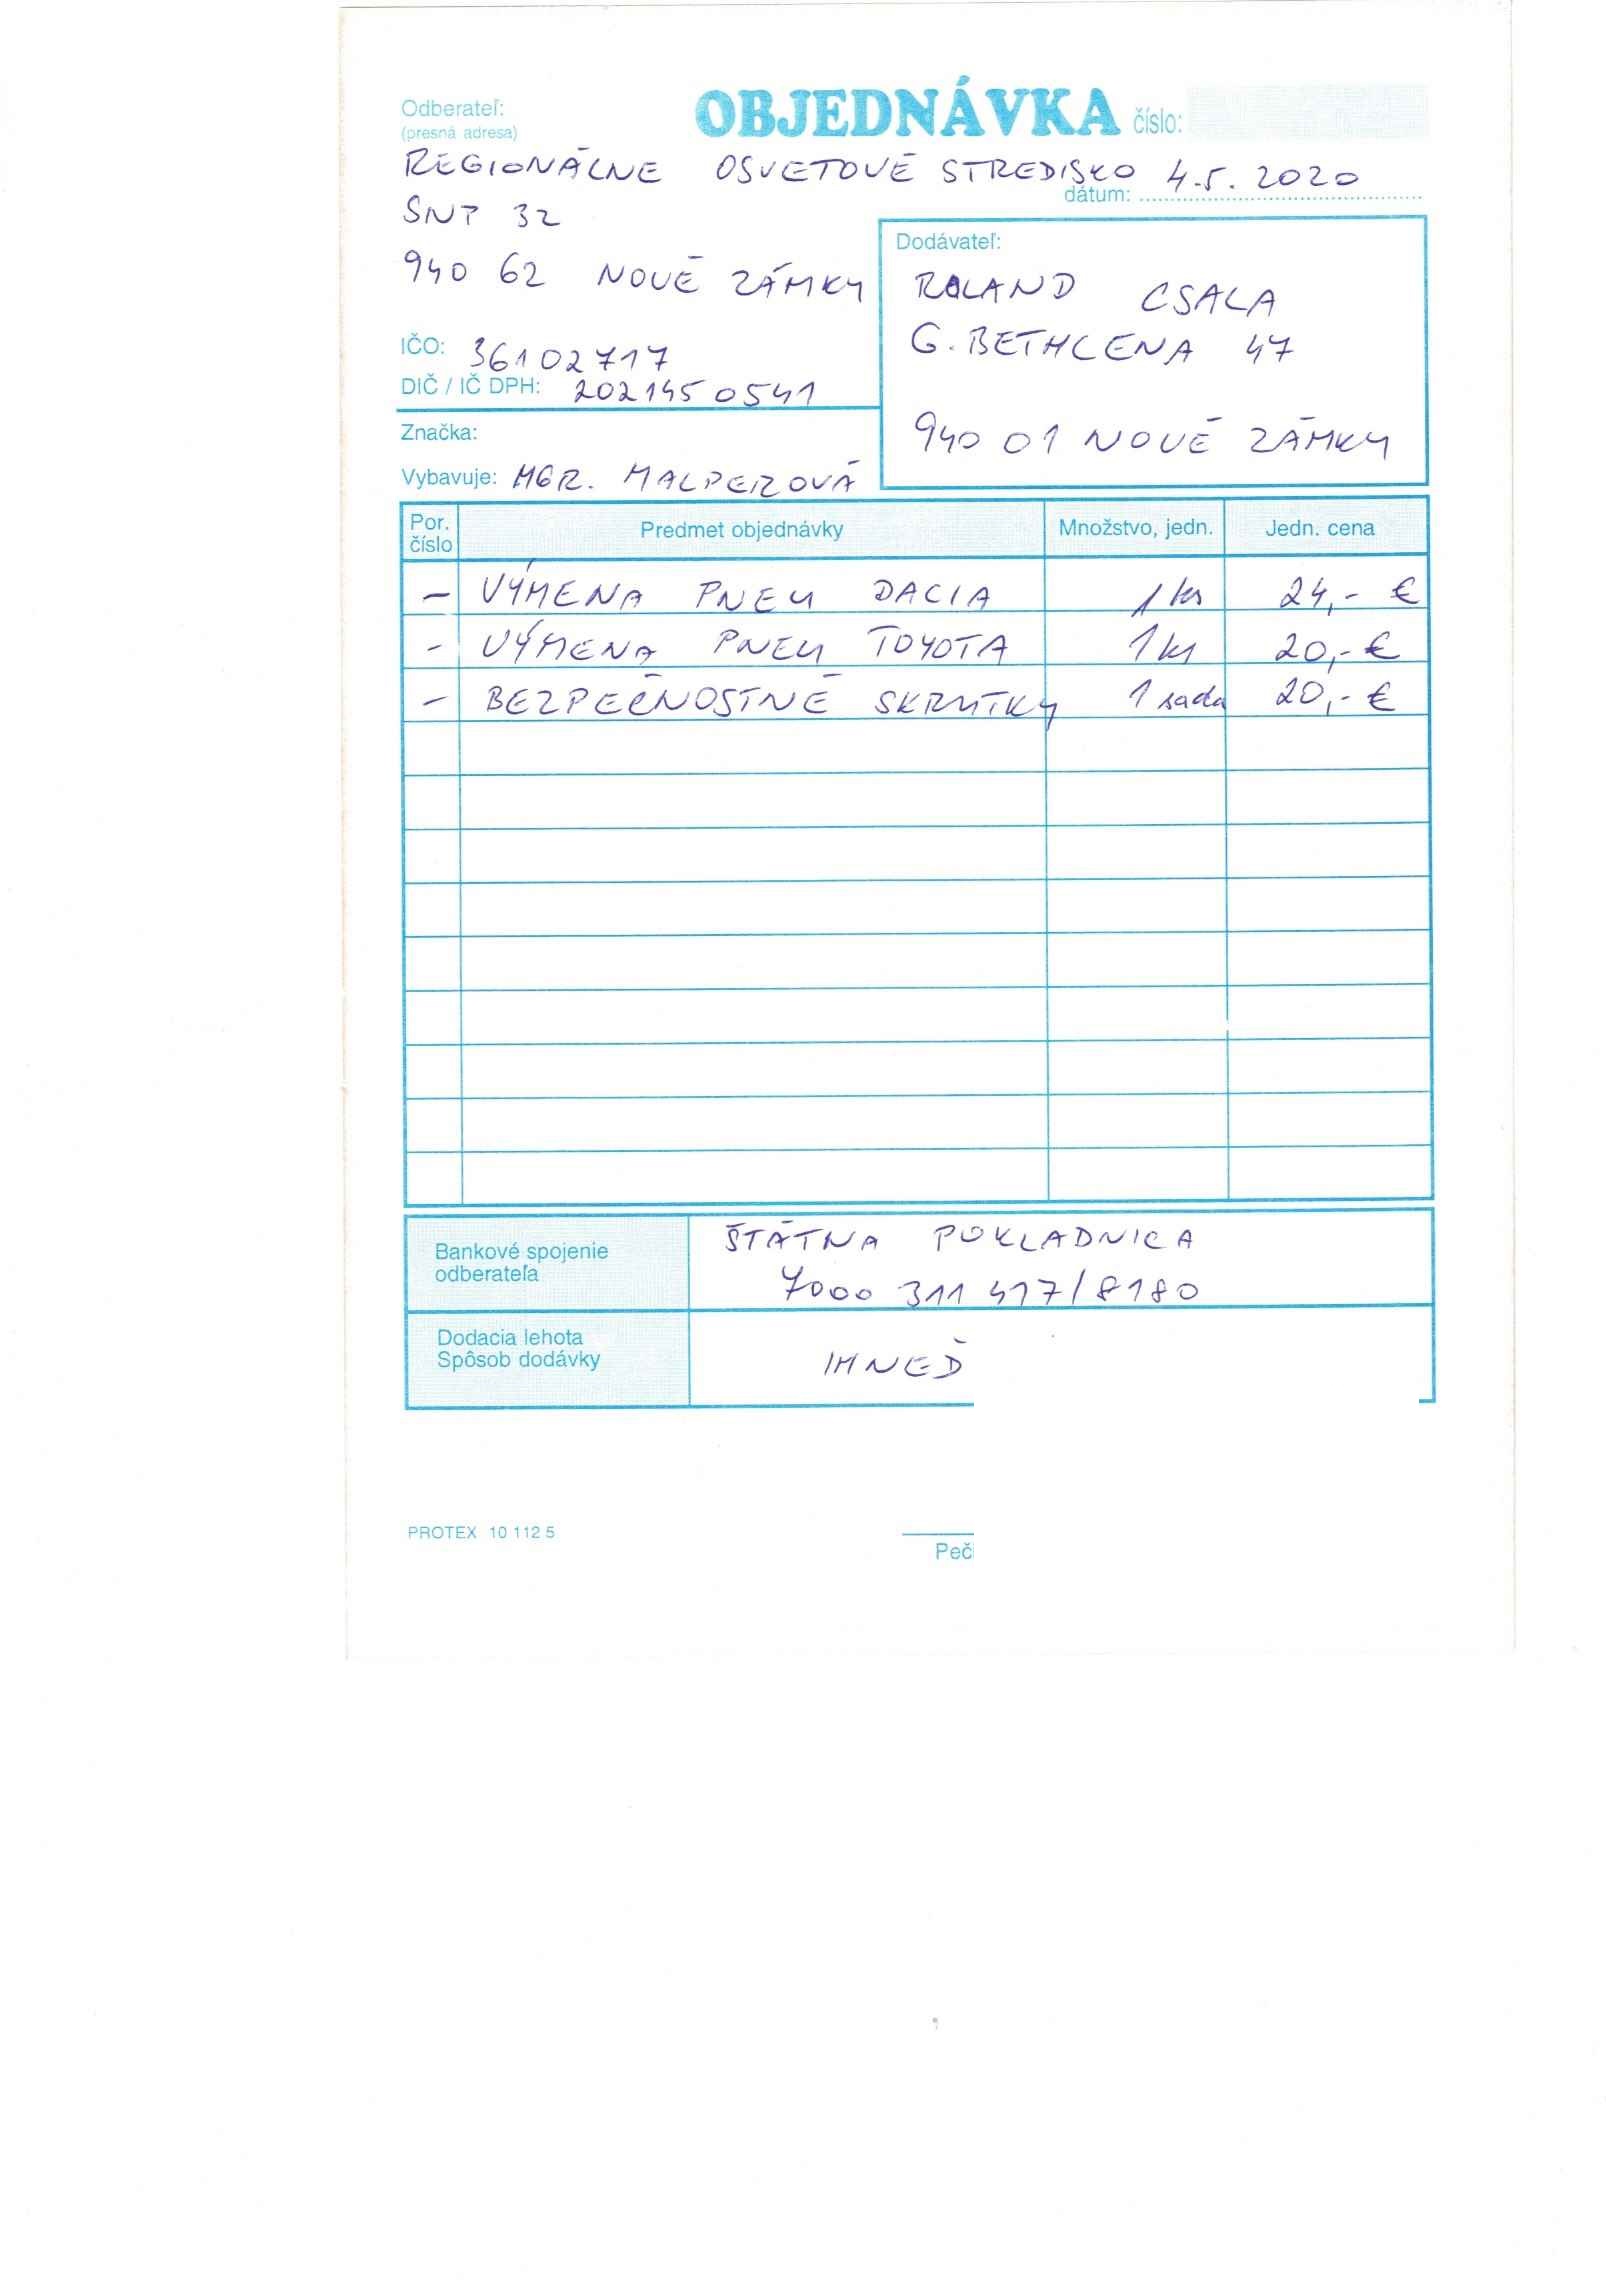 Odberateľ:
(presná adresa)
OBJEDNÁVKA číslo:
REGIONÁLNE OSVETOVÉ STREDISKO
dátum: 4.5. 2020
SNP 32
940 62 NOVÉ ZÁMKY
IČO: 36102717
DIČ / IČ DPH: 2021450541
Značka:
Vybavuje: MGR. MALPEROVÁ
Dodávateľ:
ROLAND CSALA
G. BETHLENA 47
940 01 NOVÉ ZÁMKY
Por. číslo Predmet objednávky Množstvo, jedn. Jedn. cena
- VÝMENA PNEU DACIA 1 ks 24,- €
- VÝMENA PNEU TOYOTA 1 ks 20,- €
- BEZPEČNOSTNÉ SKRUTKY 1 sada 20,- €
Bankové spojenie
odberateľa
ŠTÁTNA POKLADNICA
7000 311 417/8180
Dodacia lehota
Spôsob dodávky
IHNEĎ
PROTEX 10 112 5
Peč